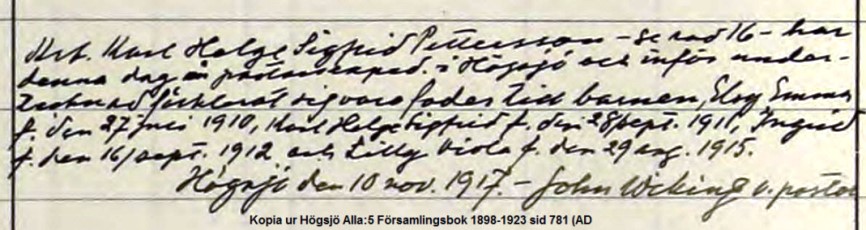 Arb. Karl Helge Sigfrid Pettersson – se rad 16 – har
denna dag å pastorsexped. i Högsjö och inför under-
tecknad förklarat sig vara fader till barnen, Elsy Emmy
f. den 27 juni 1910, Karl Helge Sigfrid f. den 28 sept. 1911, Ingrid
f. den 16 sept. 1912 och Lilly Viola f. den 29 aug. 1915.
Högsjö den 10 nov. 1917. – John Wiking v. pastor
Kopia ur Högsjö AIIa:5 Församlingsbok 1898-1923 sid 781 (AD